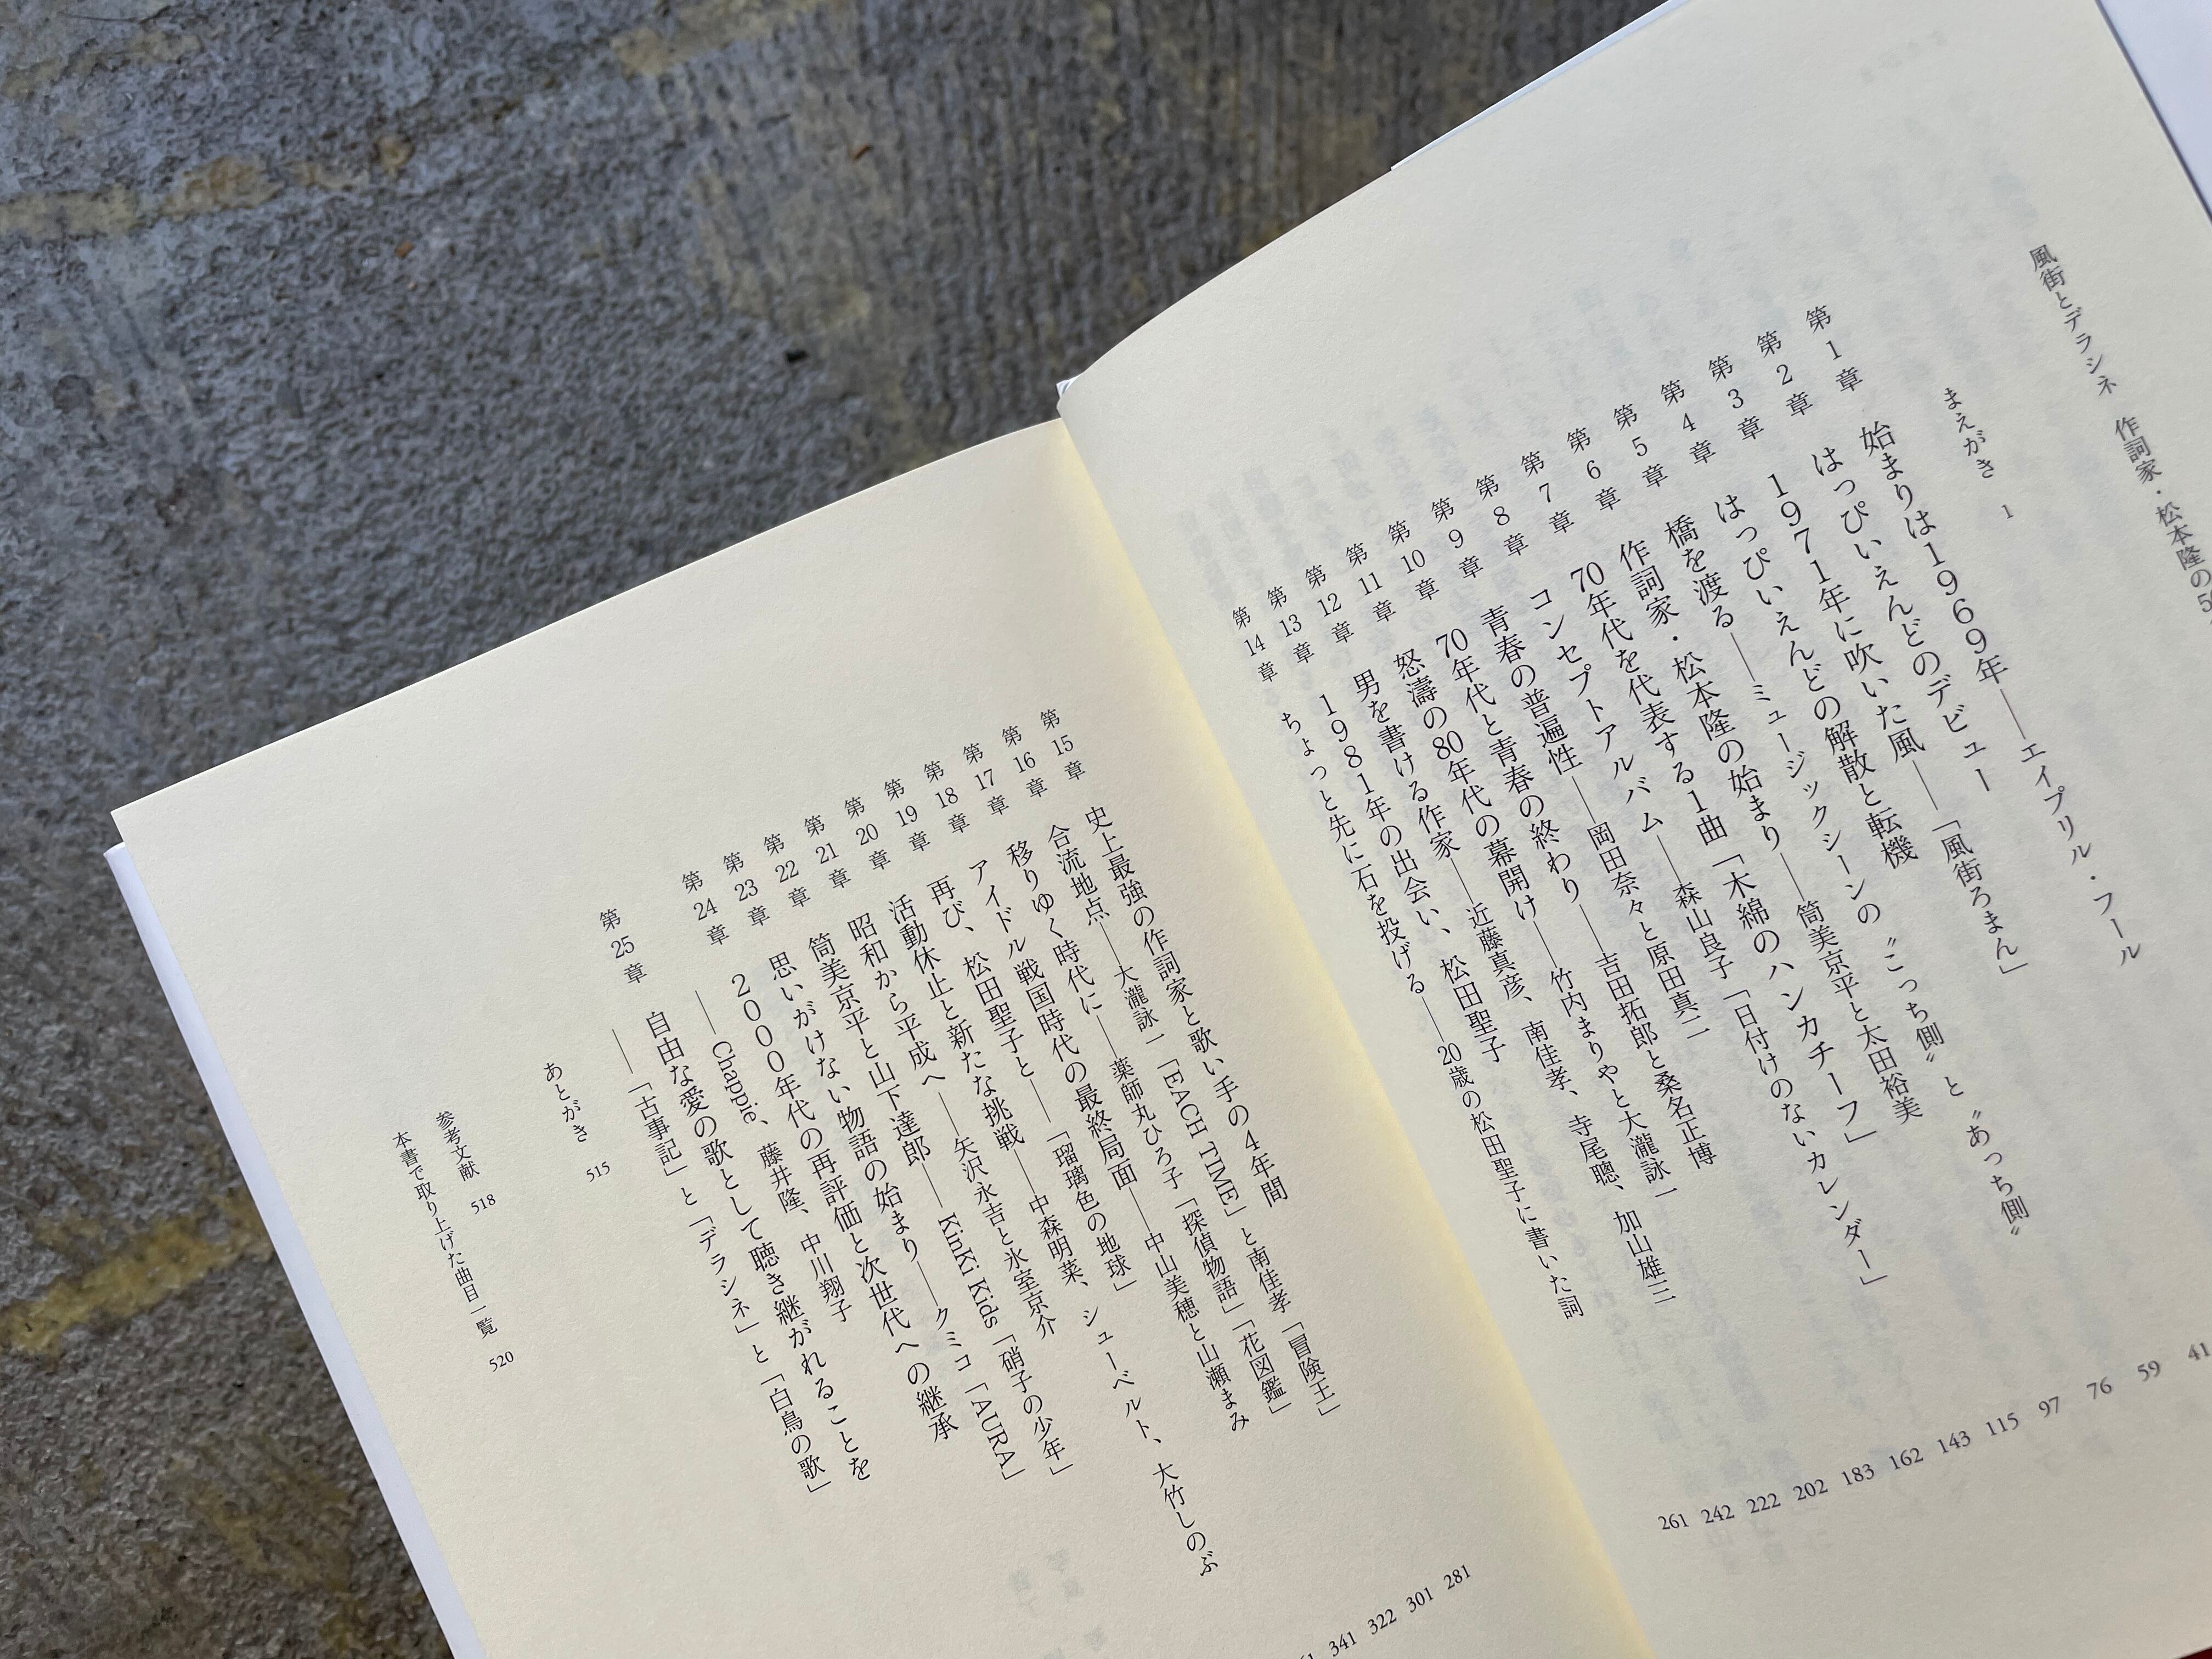 風街とデラシネ 作詞家・松本隆の50
まえがき 1
第1章 始まりは1969年――エイプリル・フール
第2章 はっぴいえんどのデビュー
第3章 1971年に吹いた風――「風街ろまん」 41
第4章 はっぴいえんどの解散と転機 59
第5章 橋を渡る――ミュージックシーンの〝こっち側〟と〝あっち側〟 76
第6章 作詞家・松本隆の始まり――筒美京平と太田裕美 97
第7章 70年代を代表する1曲「木綿のハンカチーフ」 115
第8章 コンセプトアルバム――森山良子「日付けのないカレンダー」 143
第9章 青春の普遍性――岡田奈々と原田真二 162
第10章 70年代と青春の終わり――吉田拓郎と桑名正博 183
第11章 怒濤の80年代の幕開け――竹内まりやと大瀧詠一 202
第12章 男を書ける作家――近藤真彦、南佳孝、寺尾聰、加山雄三 222
第13章 1981年の出会い、松田聖子 242
第14章 ちょっと先に石を投げる――20歳の松田聖子に書いた詞 261
第15章 史上最強の作詞家と歌い手の4年間 281
第16章 合流地点――大瀧詠一「EACH TIME」と南佳孝「冒険王」 301
第17章 移りゆく時代に――薬師丸ひろ子「探偵物語」「花図鑑」 322
第18章 アイドル戦国時代の最終局面――中山美穂と山瀬まみ 341
第19章 再び、松田聖子と――「瑠璃色の地球」
第20章 活動休止と新たな挑戦――中森明菜、シューベルト、大竹しのぶ
第21章 昭和から平成へ――矢沢永吉と氷室京介
第22章 筒美京平と山下達郎――KinKi Kids「硝子の少年」
第23章 思いがけない物語の始まり――クミコ「AURA」
第24章 2000年代の再評価と次世代への継承
――Chappie、藤井隆、中川翔子
第25章 自由な愛の歌として聴き継がれることを
――「古事記」と「デラシネ」と「白鳥の歌」
あとがき 515
参考文献 518
本書で取り上げた曲目一覧 520